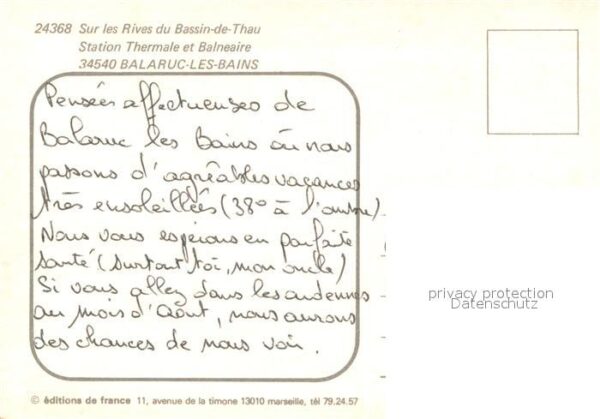 24368 Sur les Rives du Bassin-de-Thau
Station Thermale et Balneaire
34540 BALARUC-LES-BAINS
Pensées affectueuses de
Balaruc les Bains où nous
passons d'agréables vacances
très ensoleillées (38° à l'ombre)
Nous vous espérons en parfaite
santé (surtout toi, mon oncle)
Si vous allez dans les ardennes
au mois d'Août, nous aurons
des chances de nous voir.
privacy protection
Datenschutz
© éditions de france 11, avenue de la timone 13010 marseille, tél 79.24.57